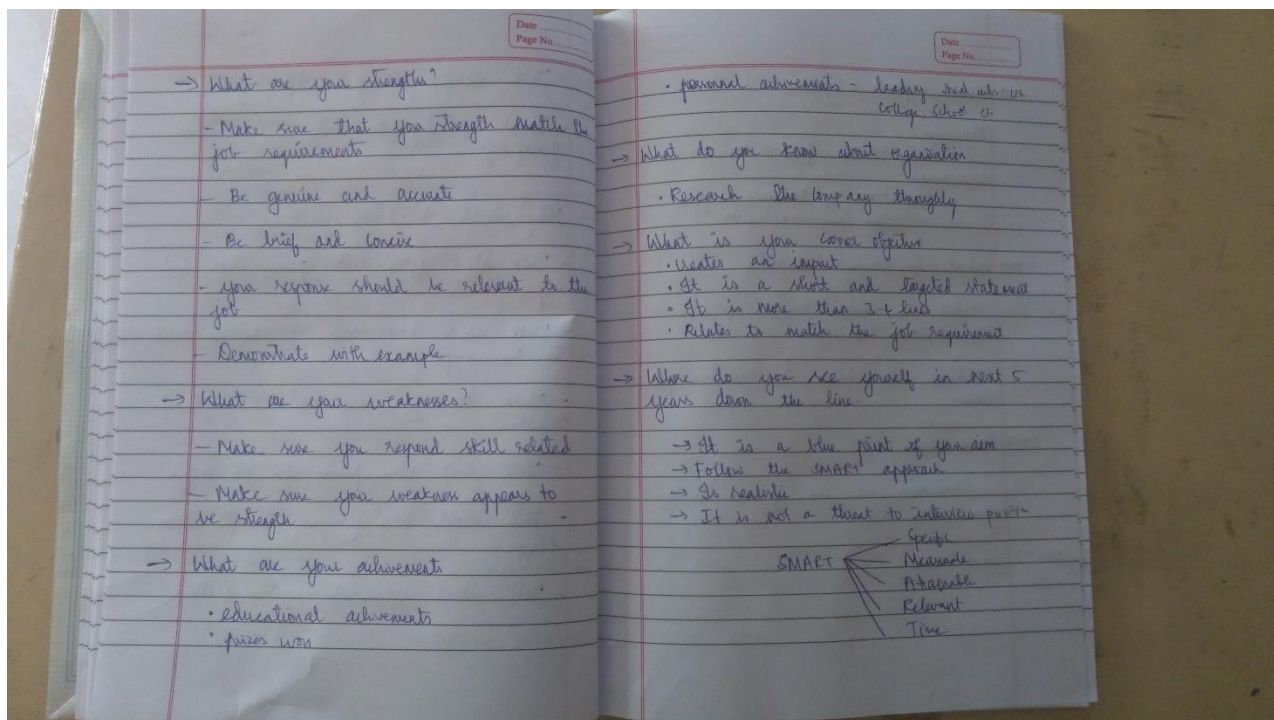 Date
Page No.
→ What are your strengths?
- Make sure that your strength match the
job requirements
- Be genuine and accurate
- Be brief and concise
- your response should be relevant to the
job
- Demonstrate with example
→ What are your weaknesses?
- Make sure you respond skill related
- Make sure your weakness appears to
be strength
→ What are your achivements
• educational achivements
• prizes won
Date
Page No.
• personal achivements - leading
college school
→ What do you know about organisation
• Research the company throughly
→ What is your career objective
• creates an impact
• It is a short and targeted statement
• It is more than 3-4 lines
• Relates to match the job requirement
→ Where do you see yourself in next 5
years down the line.
→ It is a blue print of your aim
→ Follow the SMART approach
→ Is realistic
→ It is not a threat to
Specific
SMART Measurable
Attainable
Relevant
Time